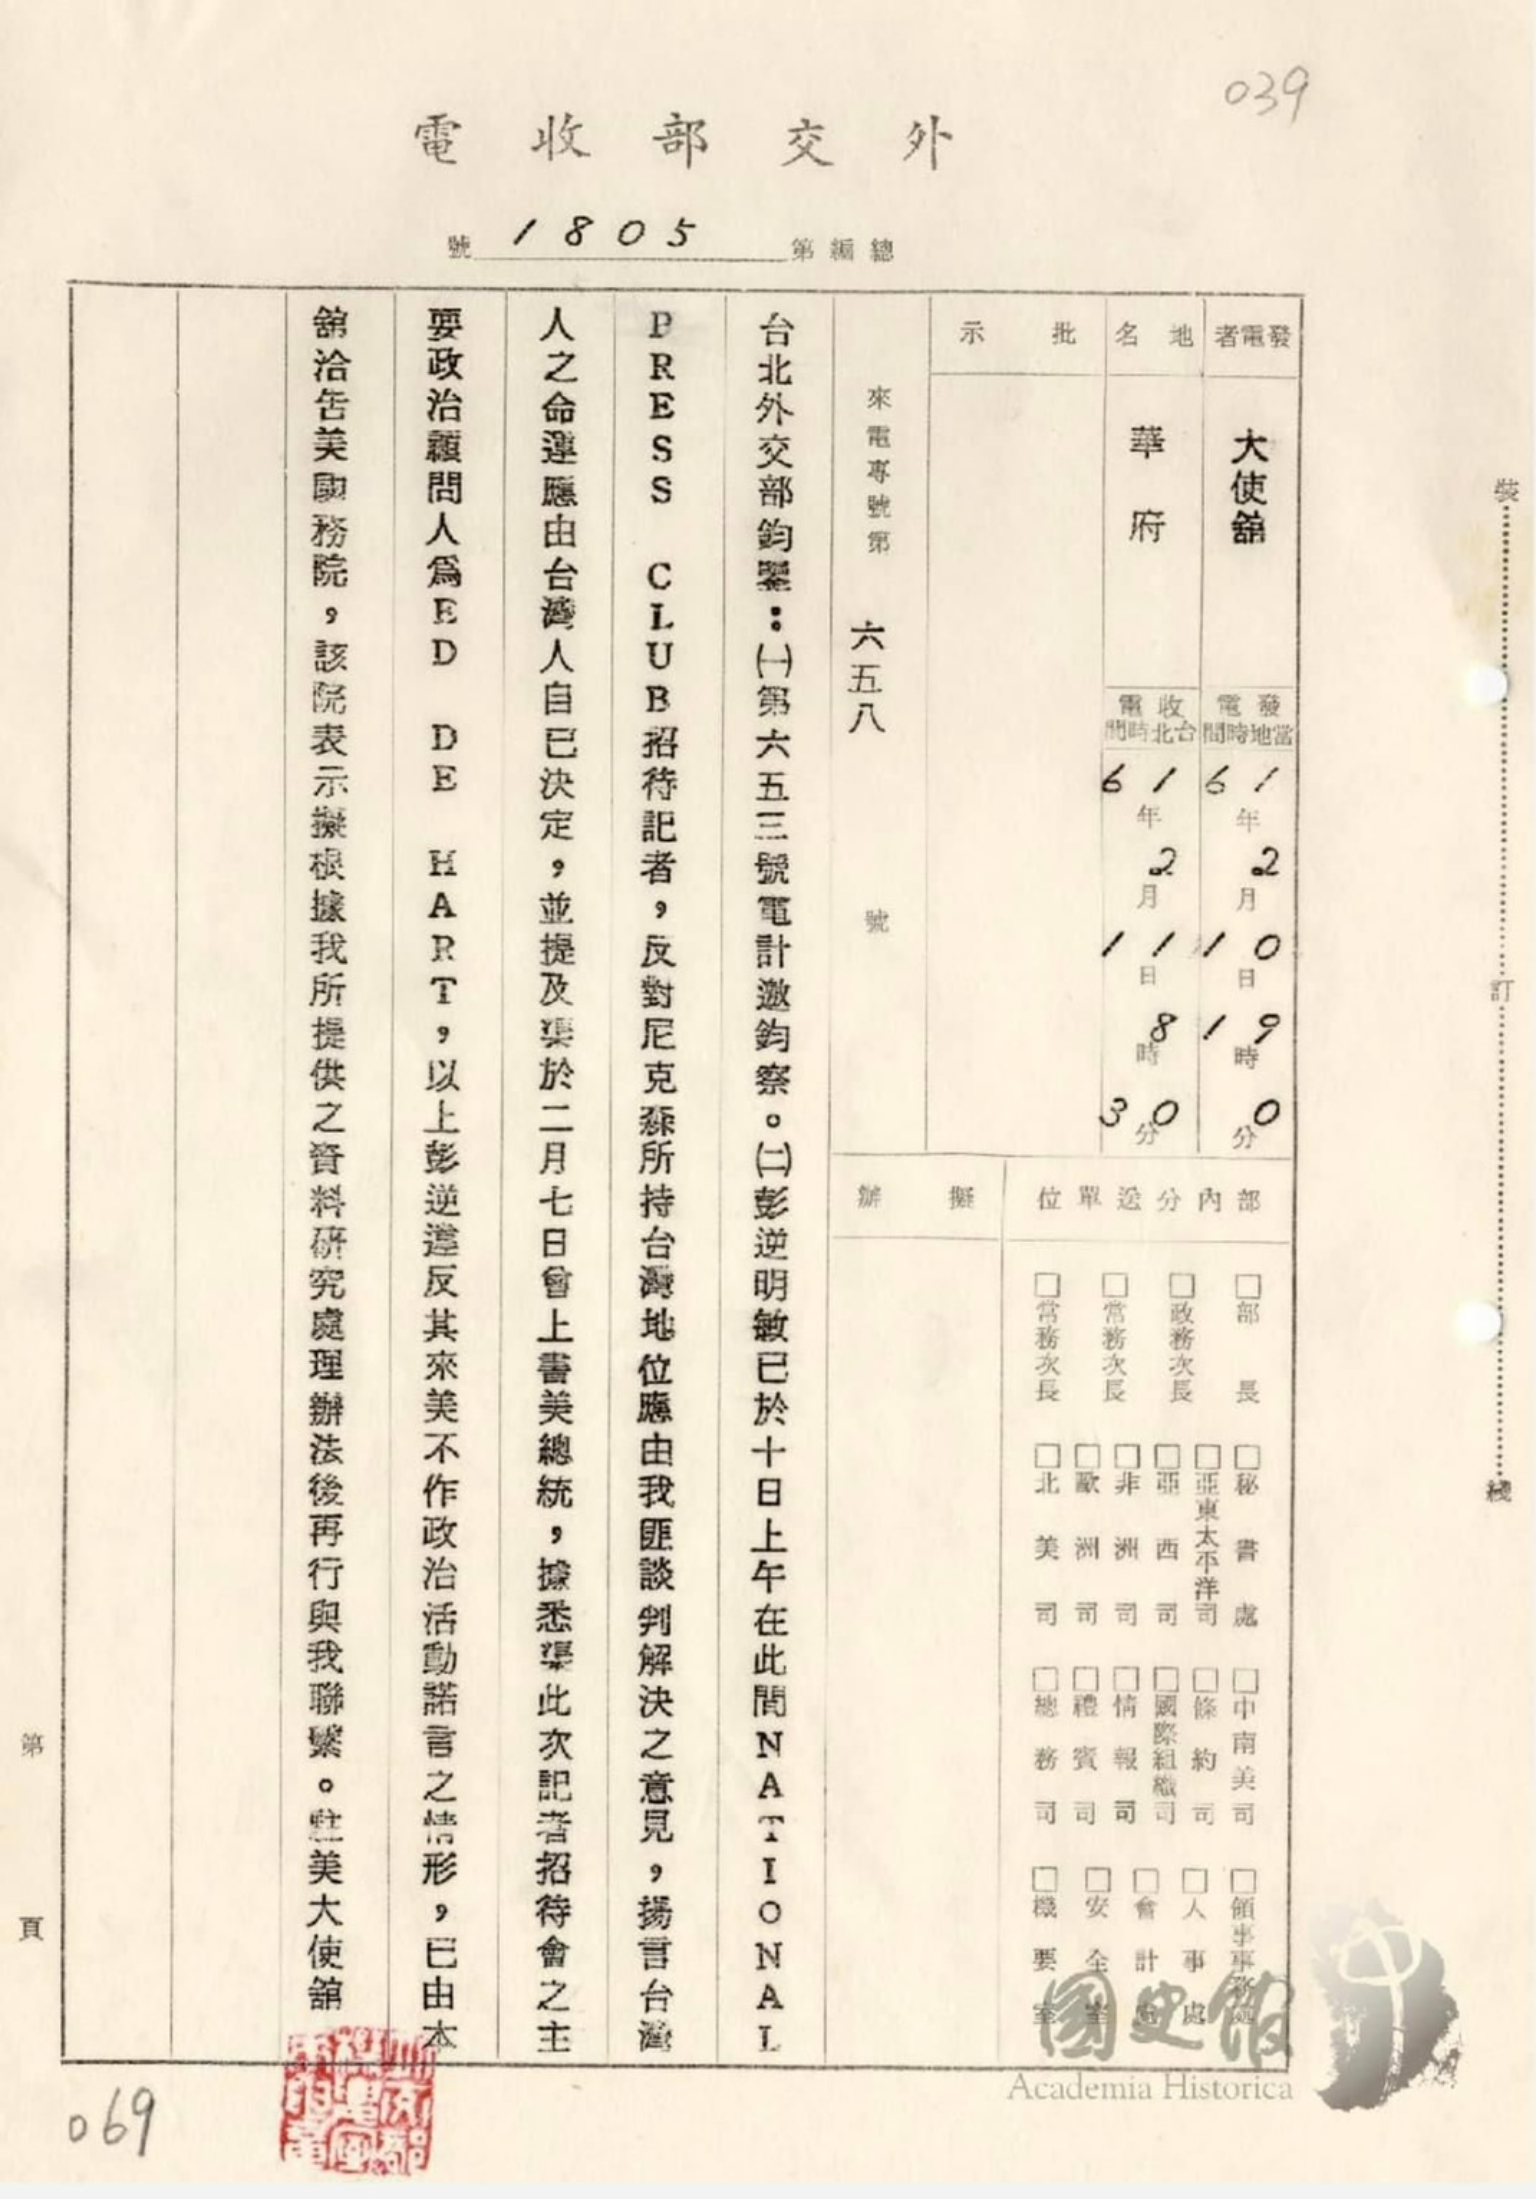 039
外交部收電
總編第1805號
發電者 大使館
發電當地時間 61年2月10日19時0分
地名 華府
收電台北時間 61年2月11日8時30分
批示
來電專號第六五八號
部內分送單位
□部長 □政務次長 □常務次長 □常務次長
□秘書處 □亞東太平洋司 □亞西司 □非洲司 □歐洲司 □北美司
□中南美司 □條約司 □國際組織司 □情報司 □禮賓司 □總務司
□領事事務處 □人事處 □會計處 □安全室 □機要室
擬辦
台北外交部鈞鑒：㈠第六五三號電計邀鈞察。㈡彭逆明敏已於十日上午在此間NATIONAL
PRESS CLUB招待記者，反對尼克森所持台灣地位應由我匪談判解決之意見，揚言台灣
人之命運應由台灣人自己決定，並提及渠於二月七日曾上書美總統，據悉渠此次記者招待會之主
要政治顧問人為ED DE HART，以上彭逆違反其來美不作政治活動諾言之情形，已由本
館洽告美國務院，該院表示擬根據我所提供之資料研究處理辦法後再行與我聯繫。駐美大使館
裝訂線
第 頁
069
國史館
Academia Historica